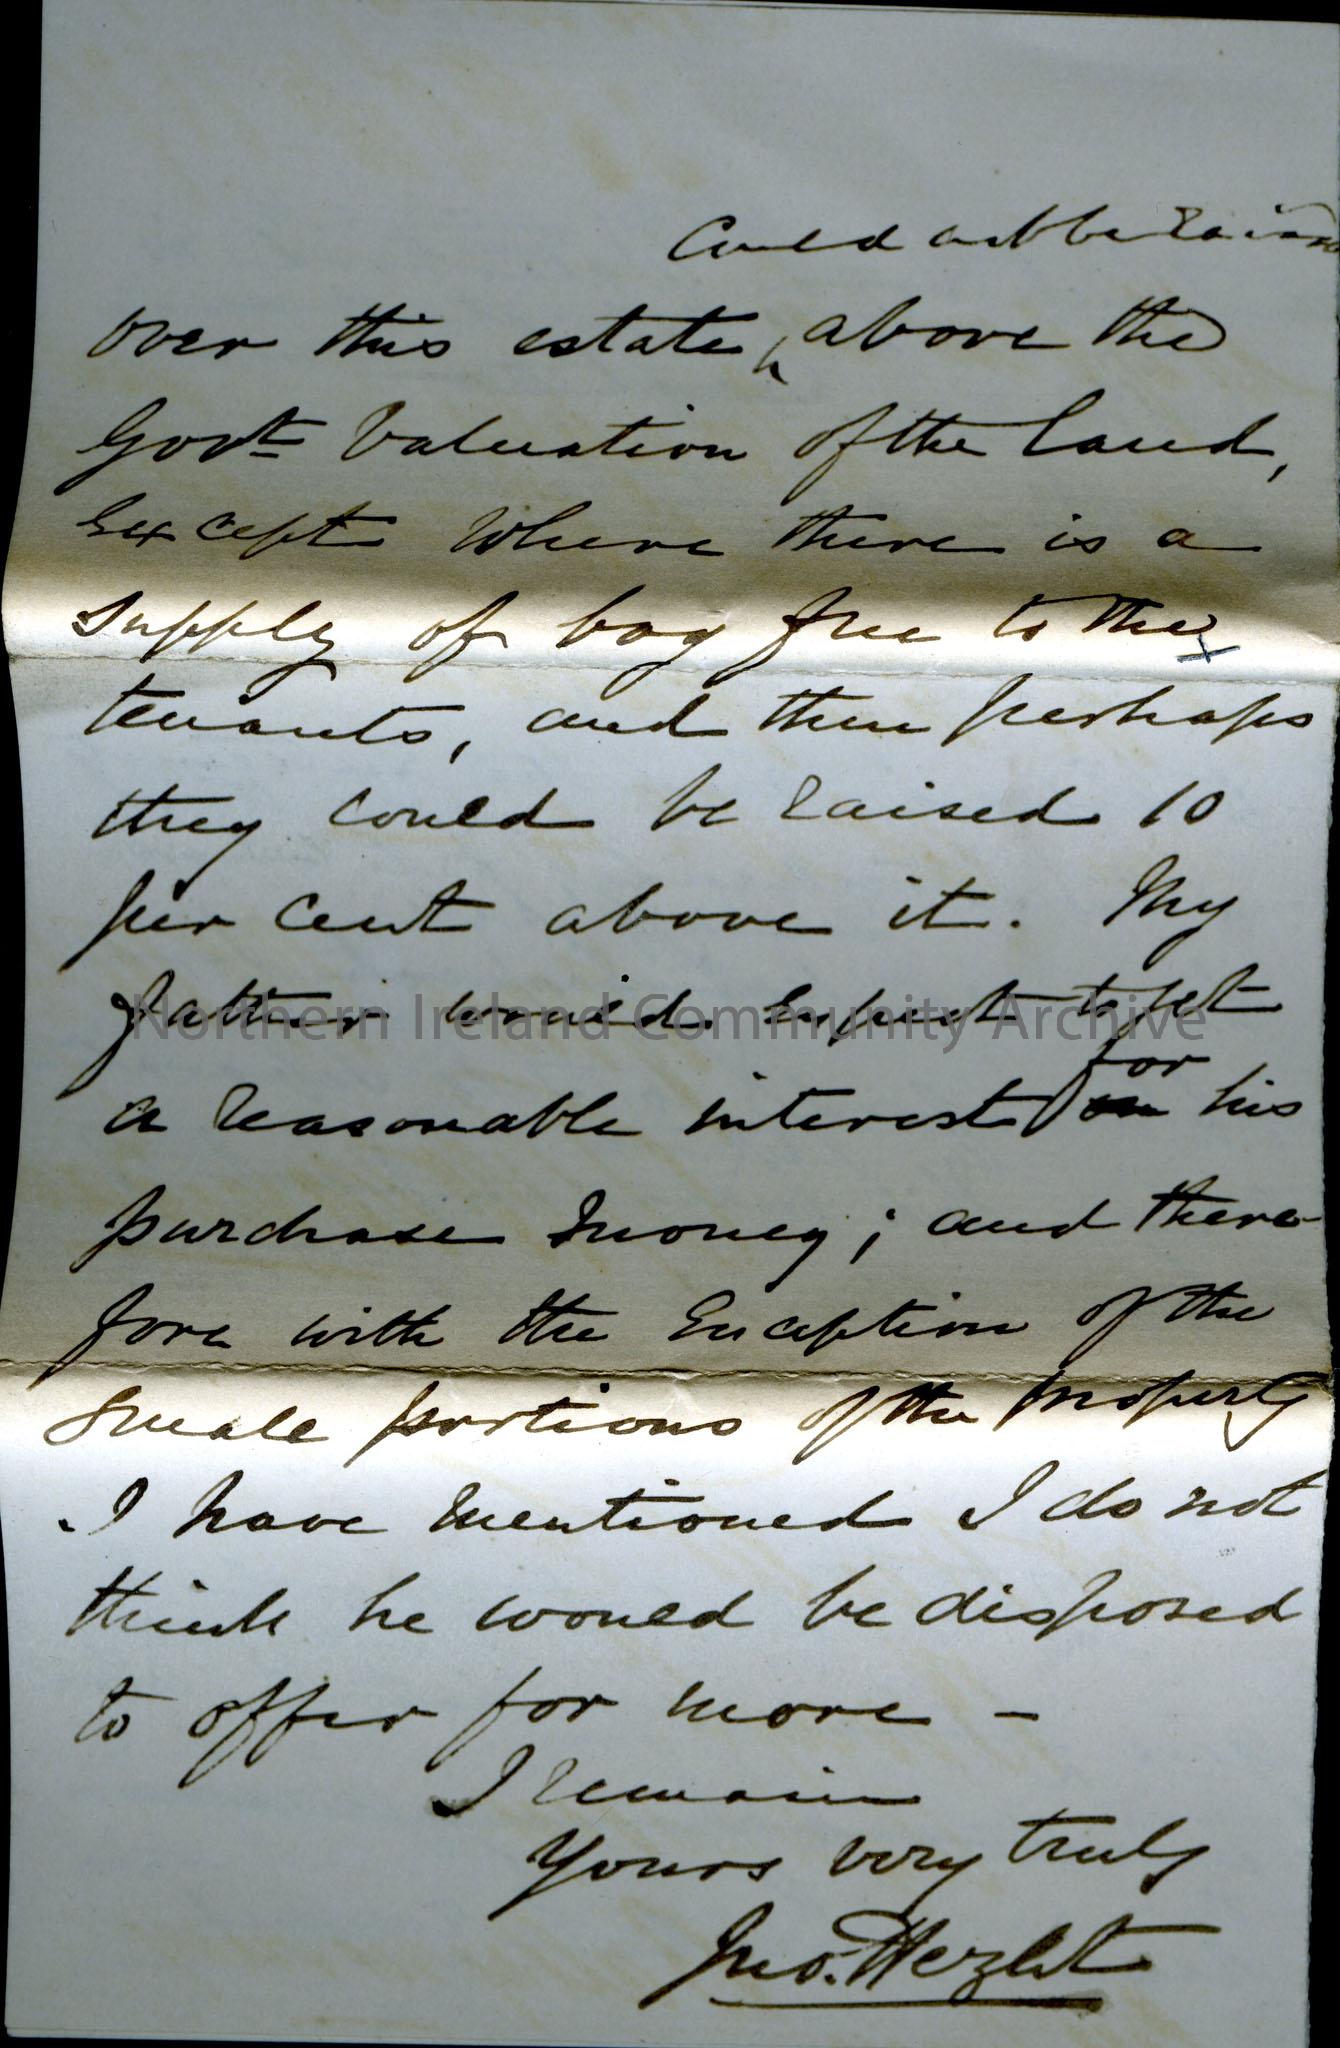 could not be raised
over this estate, above the
Govt. Valuation of the land,
Except where there is a
supply of bog free to the
tenants, and then perhaps
they could be raised 10
per cent above it. My
father would Expect to get
a reasonable interest for his
purchase money; and there-
fore with the Exception of the
small portions of the property
I have mentioned I do not
think he would be disposed
to offer for more -
I remain
Yours very truly
Jno. Hezlet
Northern Ireland Community Archive